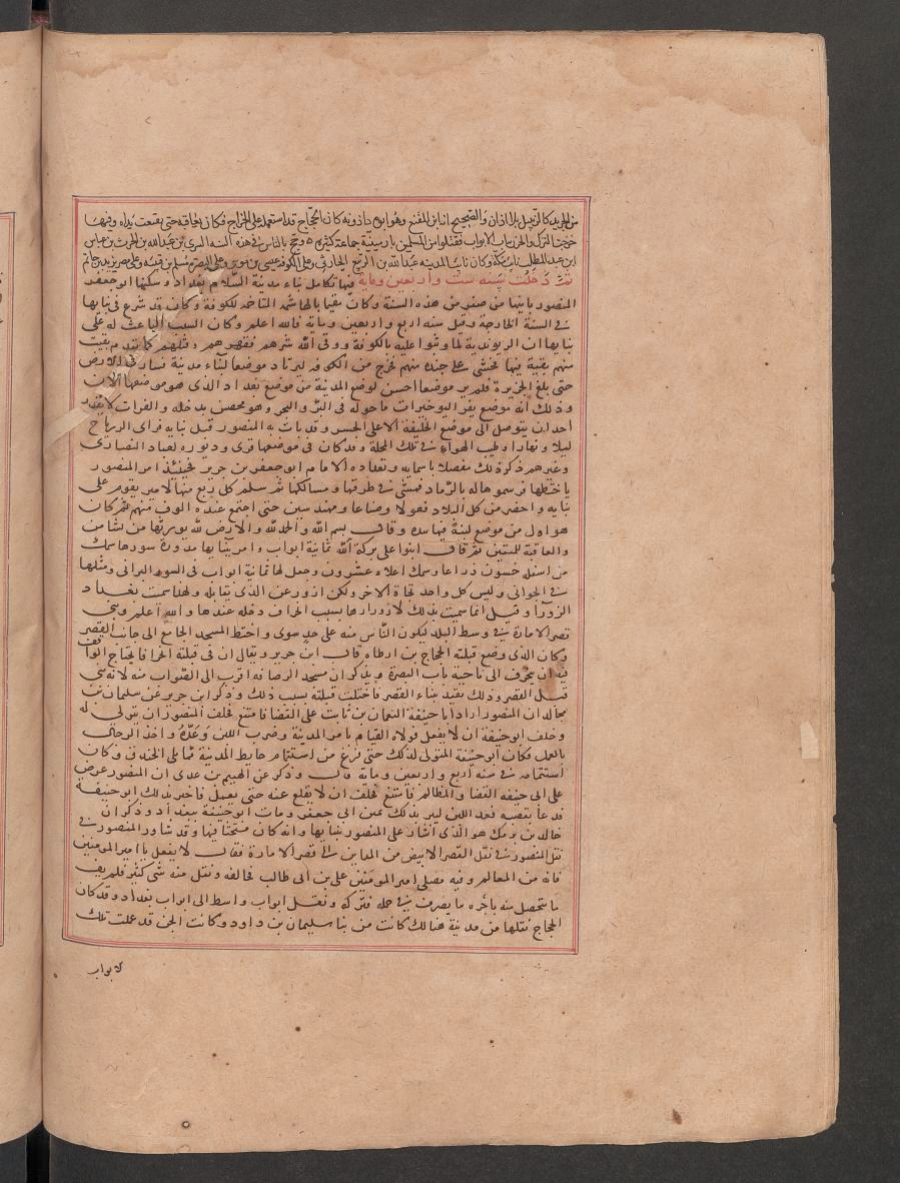 من الجريد كالزبيل بلا اذان والصحيح انه ابن المقفع وهو ابوه داذويه كان الحجاج قد استعمله على الخراج فخان فعاقبه حتى تقفعت يداه وفيها
خرجت الترك والخزر بباب الابواب فقتلوا من المسلمين بارمينية جماعة كثيرة وحج بالناس في هذه السنة السرى بن عبدالله بن الحرث بن عباس
ابن عبد المطلب نائب مكة وكان نائب المدينة عبدالله بن الربيع الحارثى وعلى الكوفة عيسى بن موسى وعلى البصرة مسلم بن قتيبة وعلى مصر يزيد بن حاتم
ثم دخلت سنة ست واربعين وماية فيها تكامل بناء مدينة السلام بغداد وسكنها ابو جعفر
المنصور بانيها من صفر من هذه السنة وكان مقيما بالهاشمية المتاخمة للكوفة وكان قد شرع في بنايها
في السنة الخارجة وقيل سنة اربع واربعين وماية فالله اعلم وكان السبب الباعث له على
بنايها ان الريوندية لما وثبوا عليه بالكوفة ووقى الله شرهم فقهرهم وقتلهم كما تقدم بقيت
منهم بقية فيها فخشى على جنده منهم فخرج من الكوفة ليرتاد موضعا لبناء مدينة فسار في الارض
حتى بلغ الجزيرة فلم ير موضعا احسن لوضع المدينة من موضع بغداد الذى هو موضعها الآن
وذلك انه موضع يغر اليه خيرات ما حوله في البر والبحر وهو محصن بدجلة والفرات لا يقدر
احد ان يتوصل الى موضع الخليفة الا على الجسر وقد بات به المنصور قبل بنايه فراى الرياح
ليلا ونهارا وطيب الهواء في تلك المحلة وقد كان في موضعها قرى وديورة لعباد النصارى
وغيرهم ذكر ذلك مفصلا باسمايه وتعداده الامام ابو جعفر بن جرير فحينئذ امر المنصور
باختطها فرسموها له بالرماد فمشى في طرقها ومسالكها ثم سلم كل ربع منها لامير يقوم على
بنايه واحضر من كل البلاد فعولا وصناعا ومهندسين حتى اجتمع عنده الوف منهم ثم كان
هو اول من موضع لبنة فيها بيده وقال بسم الله والحمد لله والارض لله يورثها من يشا من
والعاقبة للمتقين ثم قال ابنوا على بركة الله ثمانية ابواب وامر ببنايها مدورة سورها سمك
من اسفله خمسون ذراعا وسمك اعلاه عشرون وجعل لها ثمانية ابواب في السور البرانى ومثلها
في الجوانى وليس كل واحد تجاه الاخر ولكن ازور عن الذى يقابله ولهذا سميت بغداد
الزورآ وقيل انما سميت بذلك لازورارها بسبب انحراف دجلة عندها والله اعلم وبنى
قصر الامارة في وسط البلد ليكون الناس منه على حد سوى واختط المسجد الجامع الى جانب القصر
وكان الذى وضع قبلته الحجاج بن ارطاه قال ابن جرير ويقال ان في قبلته انحرافا يحتاج الواقف
فيه ان ينحرف الى ناحية باب البصرة ويذكر ان مسجد الرصافة اقرب الى الصواب منه لانه بنى
قبل القصر وذلك بعيد بناء القصر فاختلت قبلته بسبب ذلك وذكر ابن جرير عن سليمان بن
مجالد ان المنصور اراد ابا حنيفة النعمان بن ثابت على القضا فامتنع فحلف المنصور ان يتولى له
وحلف ابو حنيفة ان لا يفعل فولاه القيام بامر المدينة وضرب اللبن وعده واخذ الرجال
بالعمل فكان ابو حنيفة المتولى لذلك حتى فرغ من استتمام حايط المدينة مما يلى الخندق وكان
استتمامه في سنة اربع واربعين وماية قال وذكر عن الهيثم بن عدى ان المنصور عرض
على ابى حنيفة القضا والمظالم فامتنع فحلف ان لا يقلع عنه حتى يعمل فاخبر بذلك ابو حنيفة
فدعا بقصبة فعد اللبن ليبر بذلك يمين ابى جعفر ومات ابو حنيفة ببغداد وذكر ان
خالد بن برمك هو الذى اشار على المنصور ببنايها وانه كان مستحثا فيها وقد شاور المنصور في
نقل المنصور في نقل القصر الابيض من المداين الى قصر الامارة فقال لا يفعل يا امير المومنين
فانه من المعالم وفيه مصلى امير المومنين على بن ابى طالب فخالفه ونقل منه شى كثير فلم يف
ما تحصل منه باجرة ما يصرف في حمله فتركه ونقل ابواب واسط الى ابواب بغداد وقد كان
الحجاج نقلها من مدينة هنالك كانت من بنا سليمان بن داود وكانت الجن قد عملت تلك
الابواب